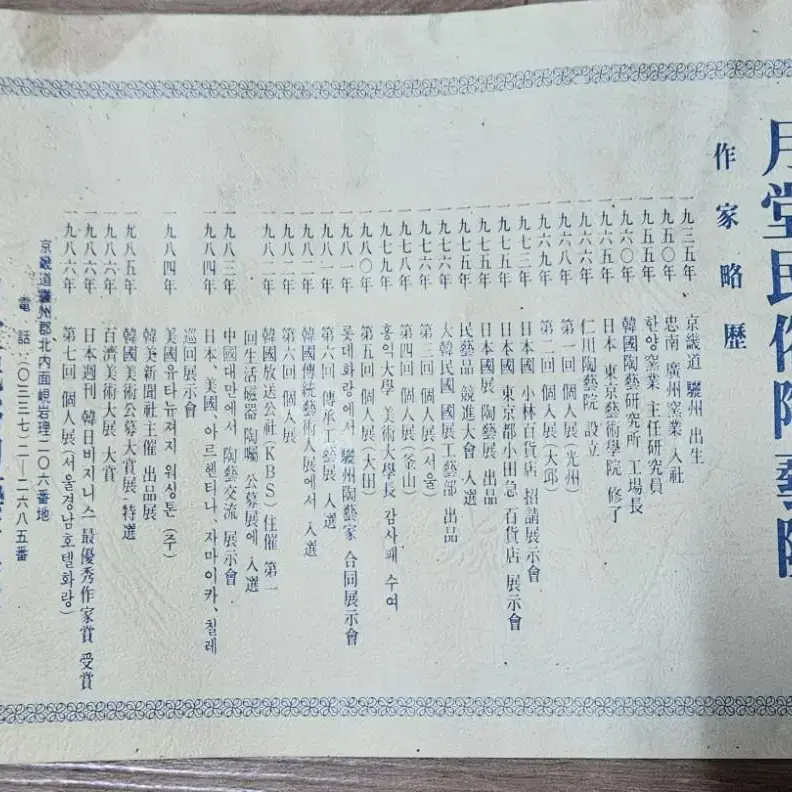 月堂民俗陶藝院
作家略歷
一九三五年 京畿道 驪州 出生
一九五〇年 忠南 廣州窯業 入社
一九五五年 한양窯業 主任研究員
一九六〇年 韓國陶藝研究所 工場長
一九六五年 日本 東京藝術學院 修了
一九六六年 仁川陶藝院 設立
一九六八年 第一回 個人展(光州)
一九六九年 第二回 個人展(大邱)
一九七三年 日本國 小林百貨店 招請展示會
一九七五年 日本國 東京都小田急 百貨店 展示會
一九七五年 日本國展 陶藝展 出品
一九七五年 民藝品 競進大會 入選
一九七六年 大韓民國 國展工藝部 出品
一九七六年 第三回 個人展(서울)
一九七八年 第四回 個人展(釜山)
一九七九年 홍익大學 美術大學長 감사패 수여
一九八〇年 第五回 個人展(大田)
一九八一年 롯데화랑에서 驪州陶藝家 合同展示會
一九八一年 第六回 傳承工藝展 入選
一九八二年 韓國傳統藝術人展에서 入選
一九八二年 第六回 個人展
一九八二年 韓國放送公社(KBS) 住催 第一
回生活磁器 陶囑 公募展에 入選
一九八三年 中國대만에서 陶藝交流 展示會
一九八四年 日本、美國、아르헨티나、자마이카、칠레
巡回展示會
一九八四年 美國유타뉴져지 워싱톤 (주)
韓美新聞社主催 出品展
一九八五年 韓國美術公募大賞展 特選
一九八六年 百濟美術大展 大賞
一九八六年 日本週刊 韓日비지니스 最優秀作家賞 受賞
一九八六年 第七回 個人展(서울경남호텔화랑)
京畿道驪州郡北內面峴岩理二〇六番地
電話 (〇三三七)二ー二六八五番